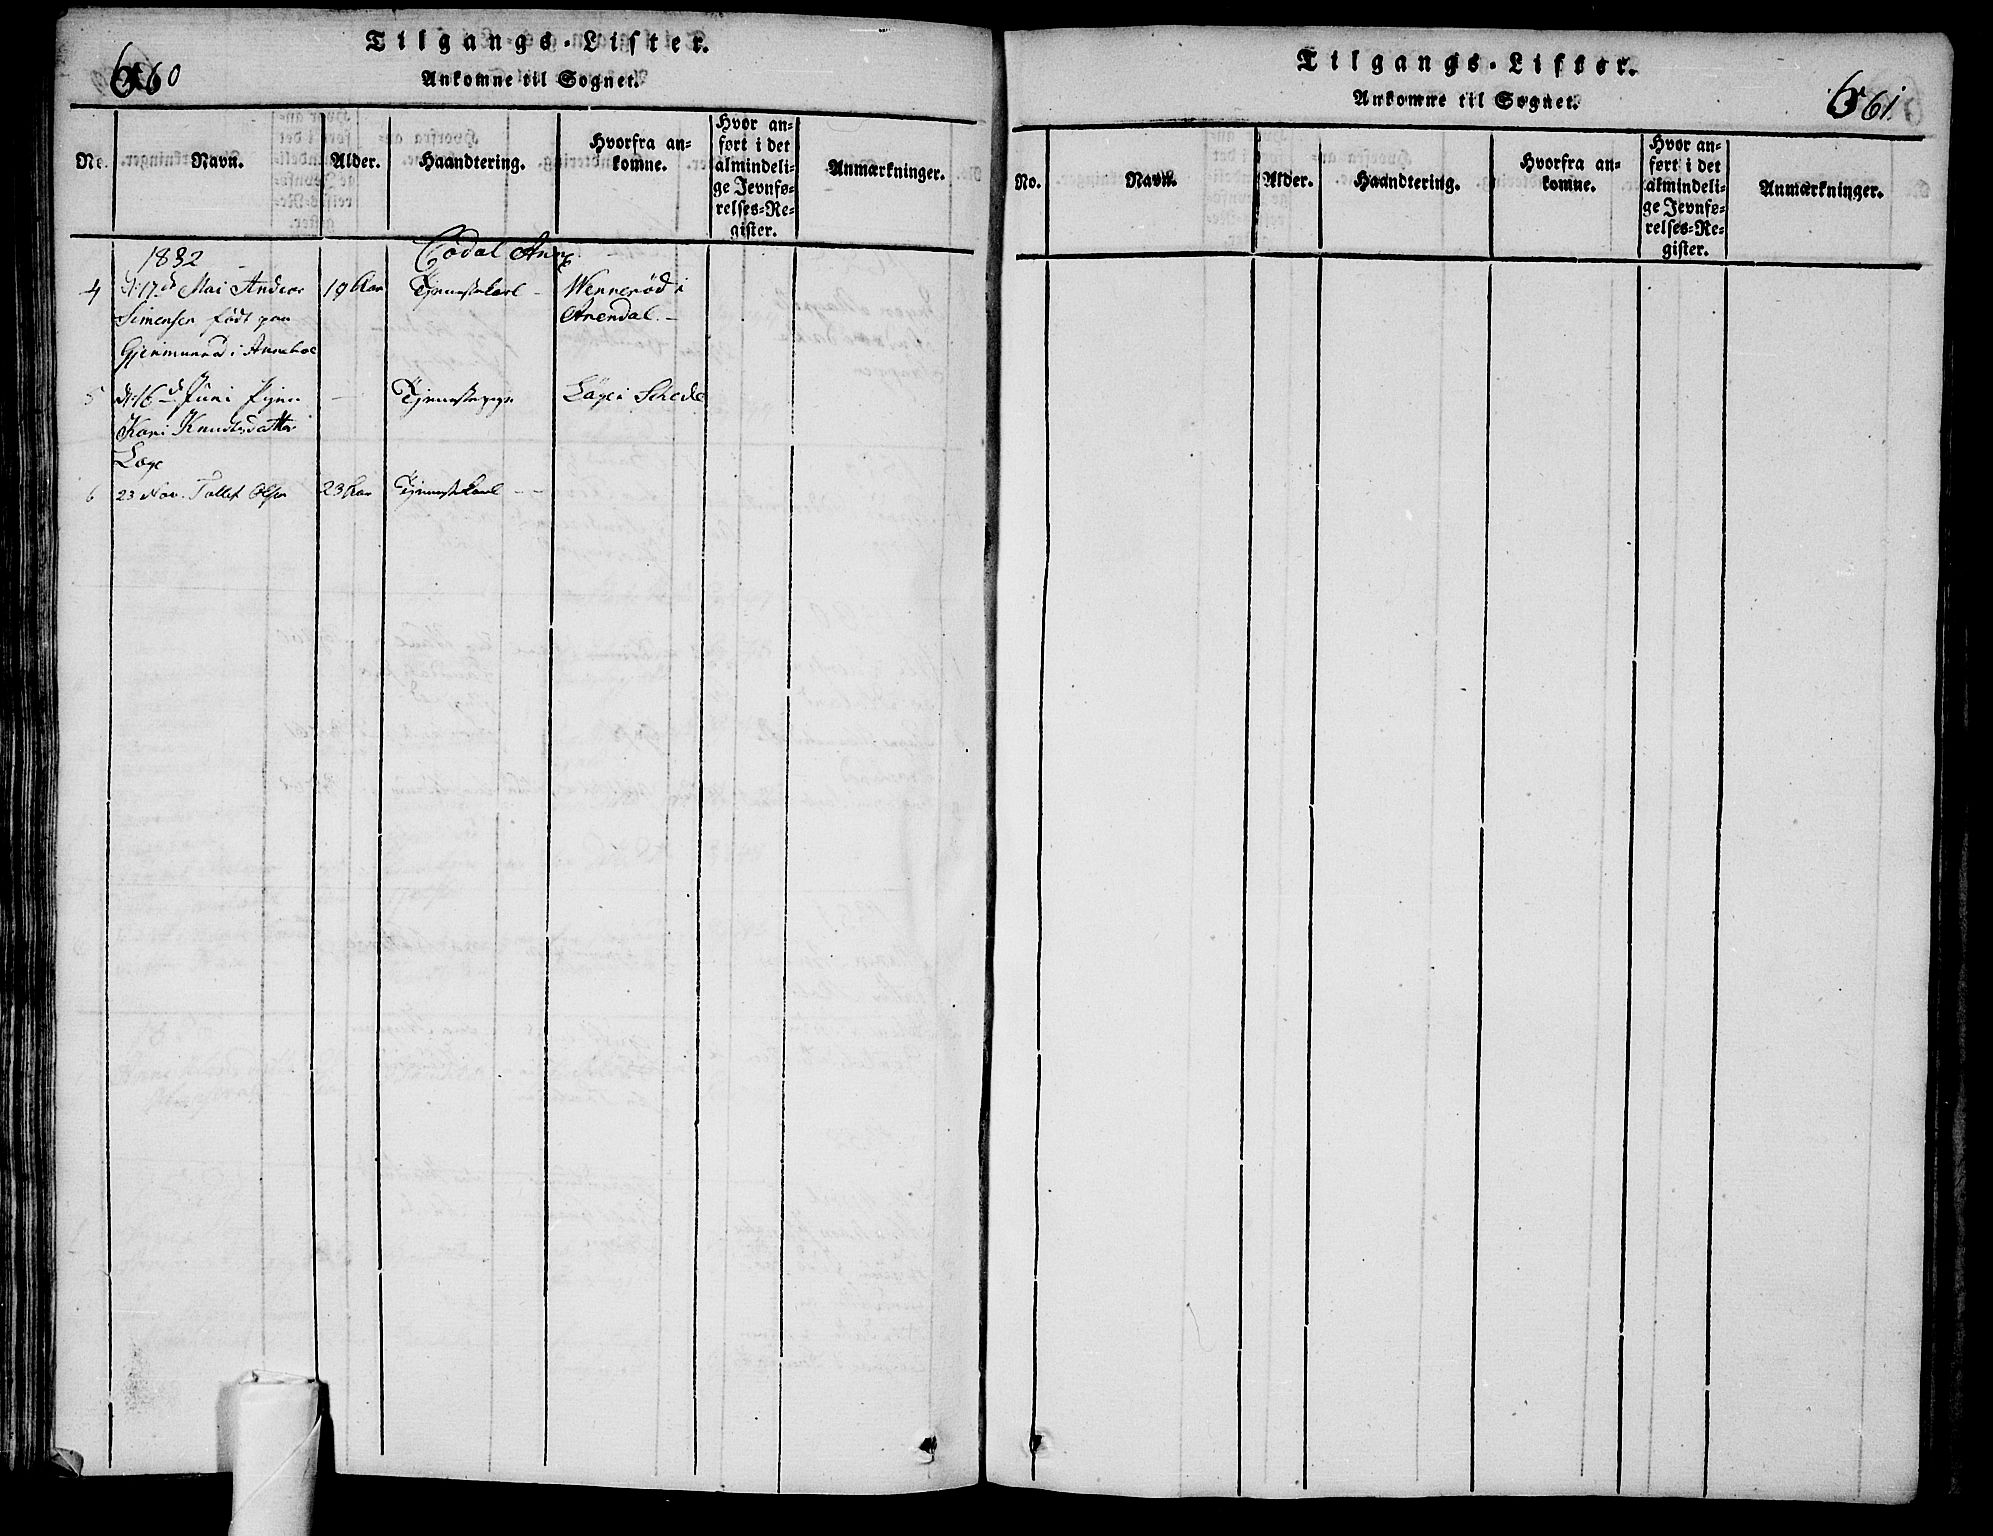 660
Tilgangs-Lister.
Ankomne til Sognet.
No. Navn. Alder. Haandtering. Hvorfra ankomne. Hvor anført i det almindelige Jevnførelses-Register. Anmærkninger.
1832
4 d: 17d Mai Andreas 19 Aar Tjenestekarl - Wennerød i
Simensen født paa Arendal. -
Gjenmunrød i
5 d: 16d Juni Pigen - Tjenestepige Løge i Schede
Kari Knudsdatter
Løge
6 23 Nov. Tollef Olsen 23 Aar Tjenestekarl - -
661.
Tilgangs-Lister.
Ankomne til Sognet.
No. Navn. Alder. Haandtering. Hvorfra ankomne. Hvor anført i det almindelige Jevnførelses-Register. Anmærkninger.